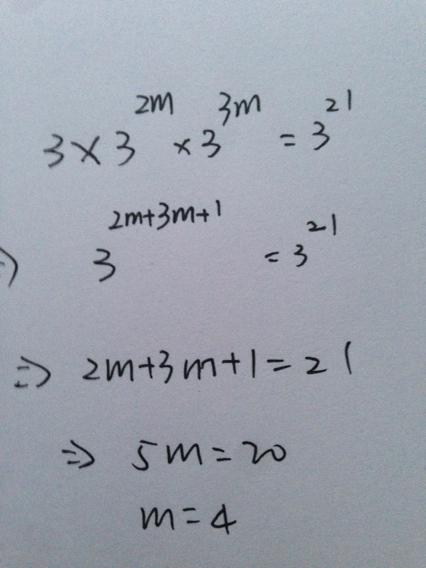 3 × 3^{2m} × 3^{3m} = 3^{21}
⇒ 3^{2m+3m+1} = 3^{21}
⇒ 2m+3m+1=21
⇒ 5m=20
m=4